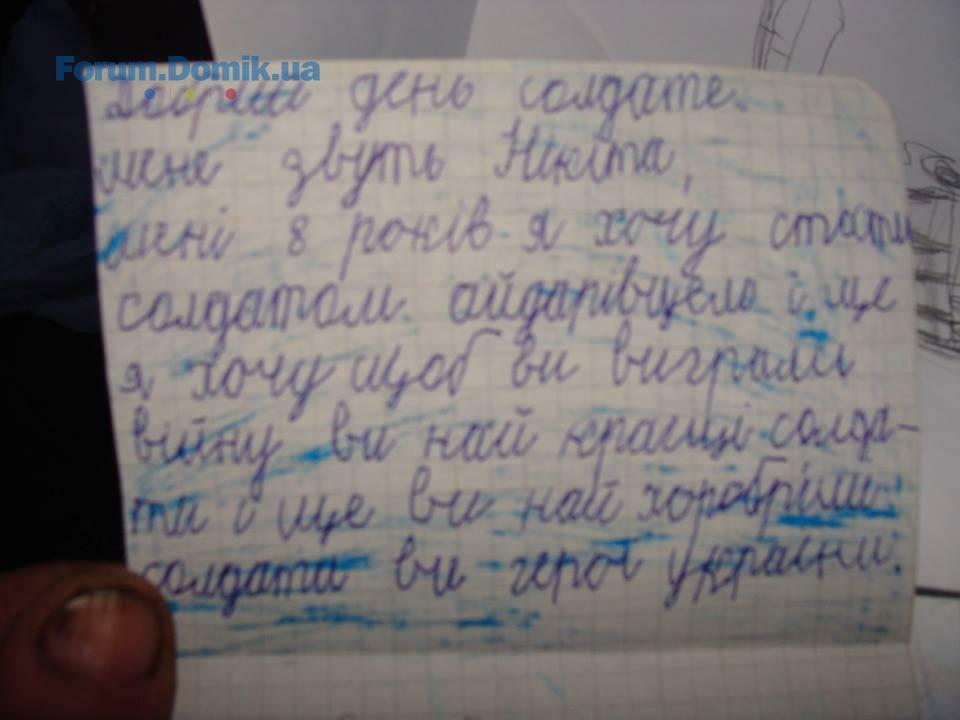 Forum.Domik.ua
Добрий день солдате.
мене звуть Нікіта,
мені 8 років я хочу стати
солдатом. айдарівцем і ще
я хочу щоб ви виграли
війну ви най кращі солда-
ти і ще ви най хоробріши
солдати ви герої україни.